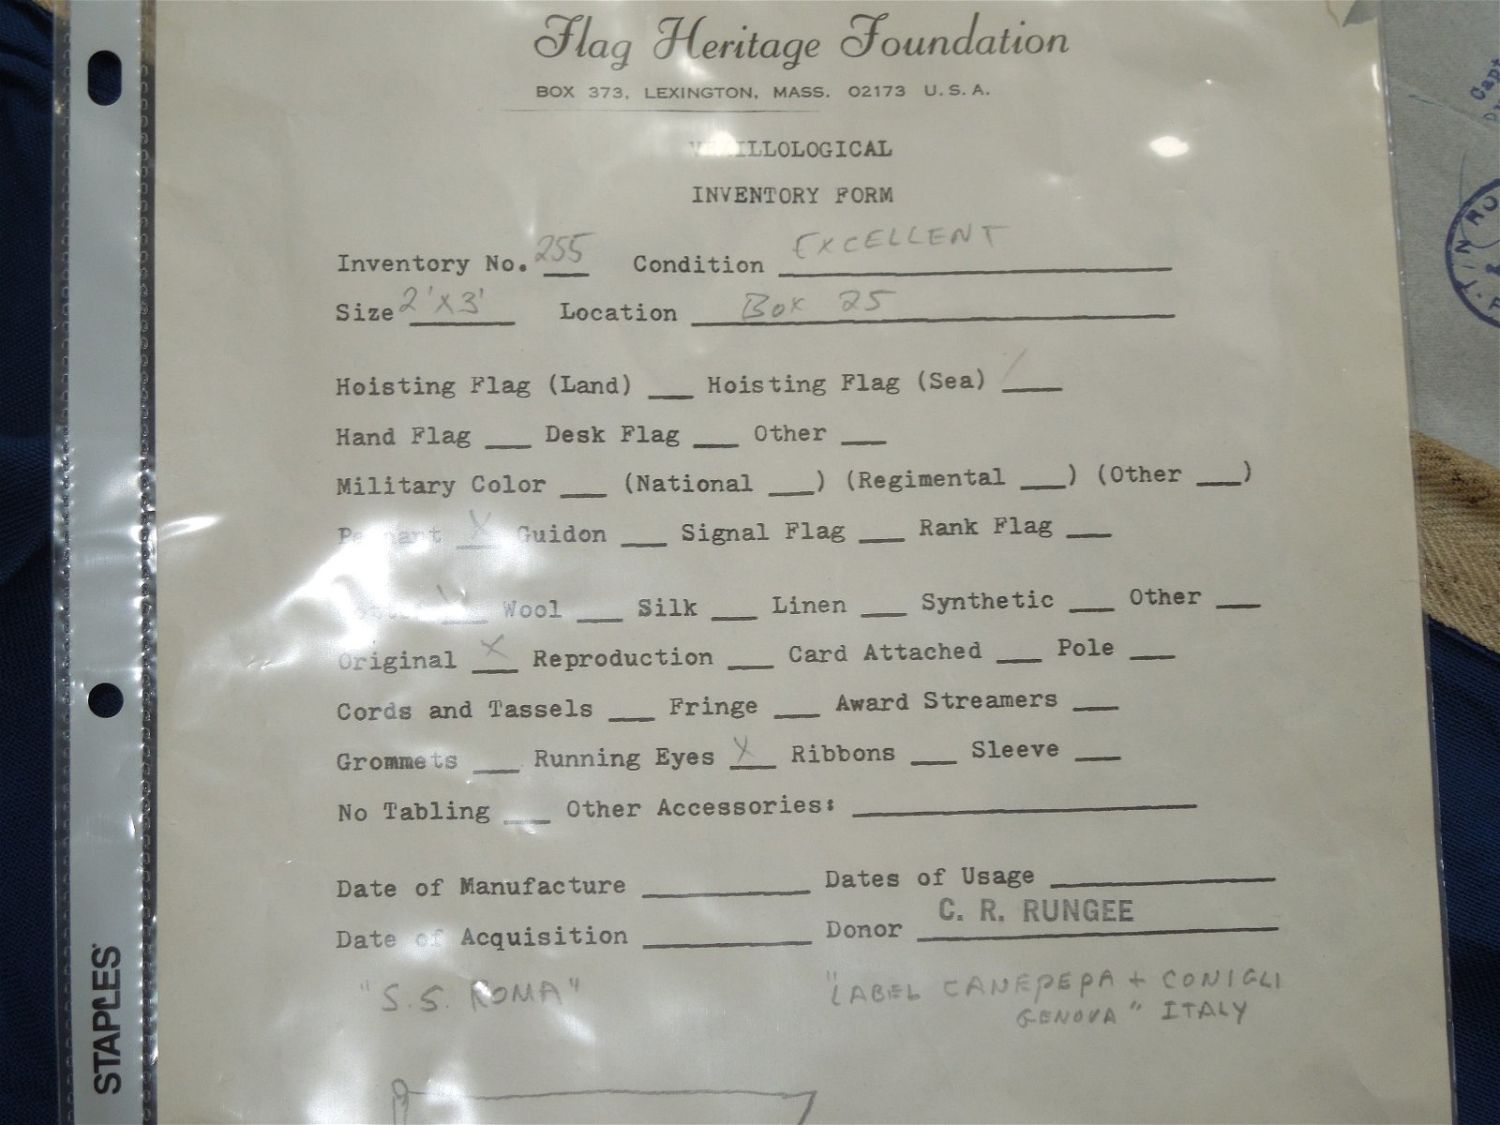 Flag Heritage Foundation
BOX 373, LEXINGTON, MASS. 02173 U.S.A.
VEXILLOLOGICAL
INVENTORY FORM
Inventory No. 255 Condition EXCELLENT
Size 2'x3' Location Box 25
Hoisting Flag (Land) ___ Hoisting Flag (Sea) ____
Hand Flag ___ Desk Flag ___ Other ___
Military Color ___ (National ___) (Regimental ___) (Other ___)
Pennant X Guidon ___ Signal Flag ___ Rank Flag ___
Cotton ___ Wool ___ Silk ___ Linen ___ Synthetic ___ Other ___
Original X Reproduction ___ Card Attached ___ Pole ___
Cords and Tassels ___ Fringe ___ Award Streamers ___
Grommets ___ Running Eyes X Ribbons ___ Sleeve ___
No Tabling ___ Other Accessories: ____
Date of Manufacture ____ Dates of Usage ____
Date of Acquisition ____ Donor C. R. RUNGEE
"S.S. ROMA" "LABEL CANEPEPA + CONIGLI
GENOVA" ITALY
STAPLES